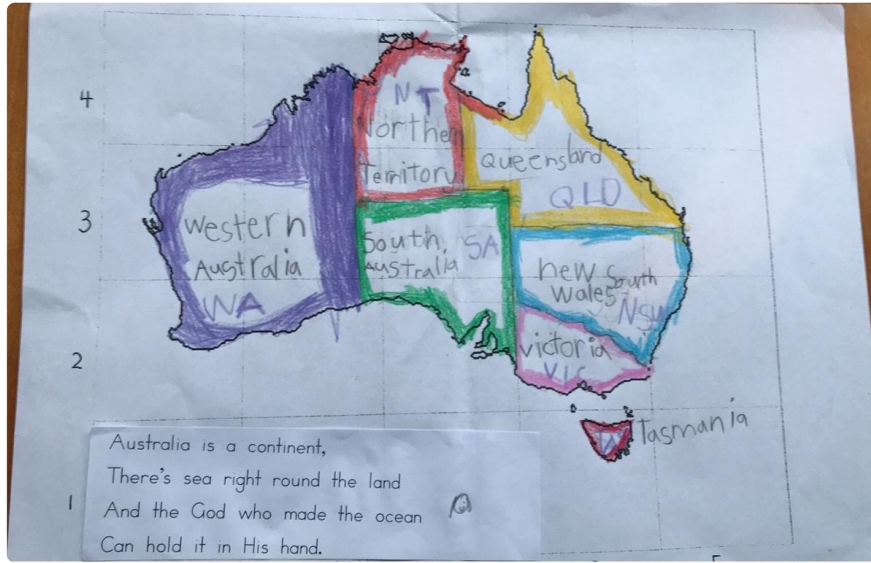 4
NT
Northern
Territory
Queensland
QLD
3
Western
Australia
WA
South
Australia
SA
new South
Wales
NSW
2
Victoria
VIC
Tasmania
Australia is a continent,
There's sea right round the land
1
And the God who made the ocean
Can hold it in His hand.